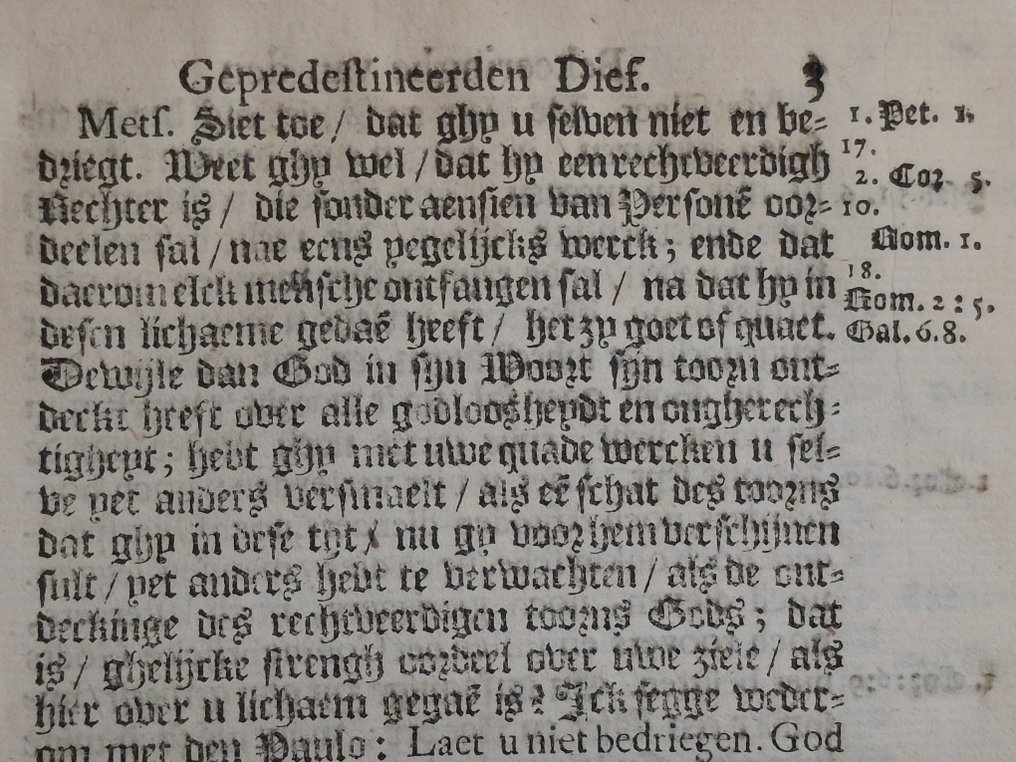 Gepredestineerden Dief. 3
Metſ. Siet toe / dat ghy u ſelven niet en be⸗
driegt. Weet ghy wel / dat hy een rechtveerdigh
Rechter is / die ſonder aenſien van Perſonē oor⸗
deelen ſal / nae eens yegelijcks werck; ende dat
daerom elck menſche ontfangen ſal / na dat hy in
deſen lichaeme gedaē heeft / het zy goet of quaet.
Dewijle dan God in ſijn Woort ſijn toorn ont⸗
deckt heeft over alle godloosheydt en ongherech⸗
tigheyt; hebt ghy met uwe quade wercken u ſel⸗
ve yet anders verſmaelt / als eē ſchat des toorns
dat ghy in deſe tijt / nu gy voor hem verſchijnen
ſult / yet anders hebt te verwachten / als de ont⸗
deckinge des rechtveerdigen toorns Gods; dat
is / ghelijcke ſtrengh oordeel over uwe ziele / als
hier over u lichaem gegaē is? Ick ſegge weder⸗
om met den Paulo: Laet u niet bedriegen. God
1. Pet. 1.
17.
2. Cor. 5.
10.
Rom. 1.
18.
Rom. 2: 5.
Gal. 6. 8.